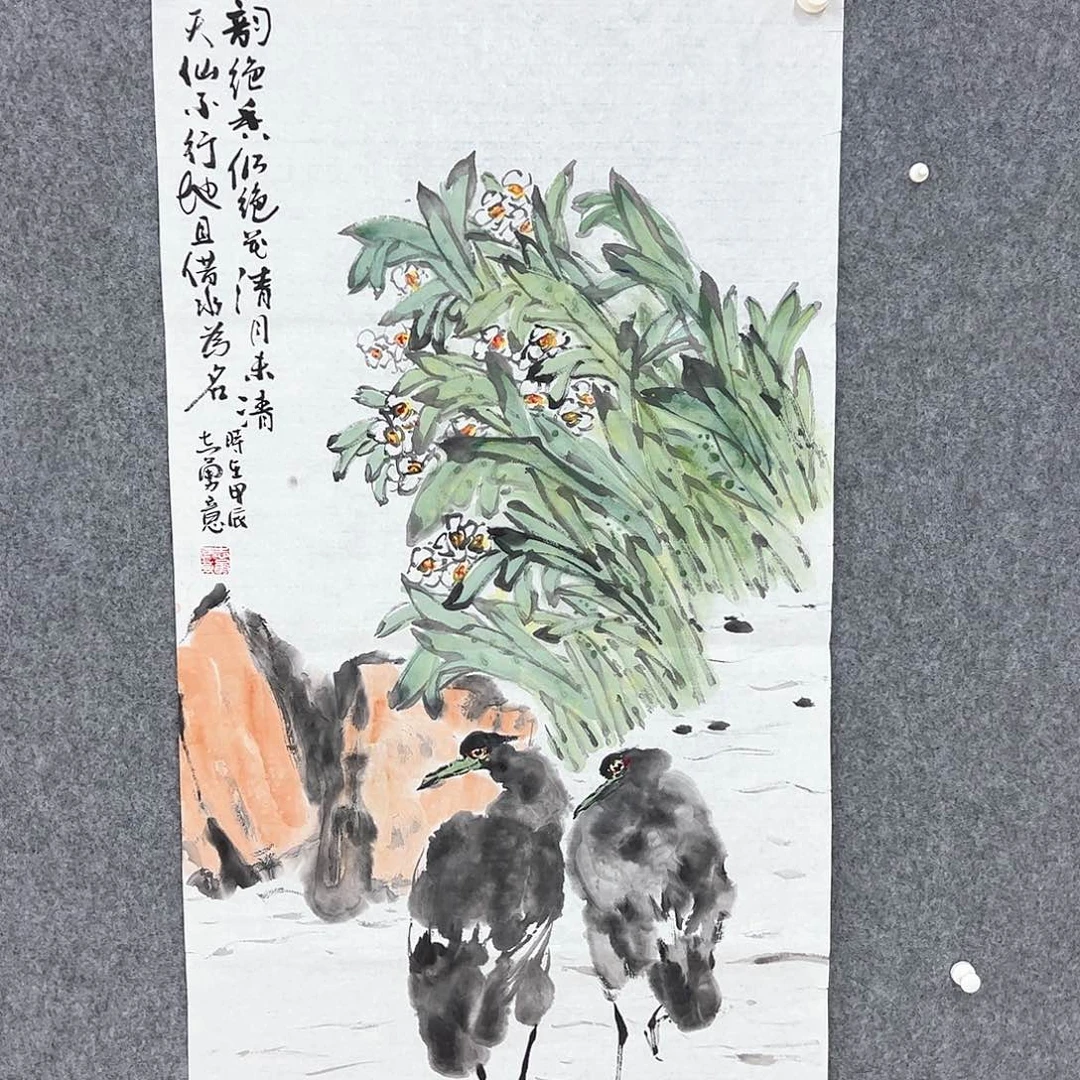 韵绝香仍绝花清月未清
天仙不行地且借水为名
時在甲辰
志勇意